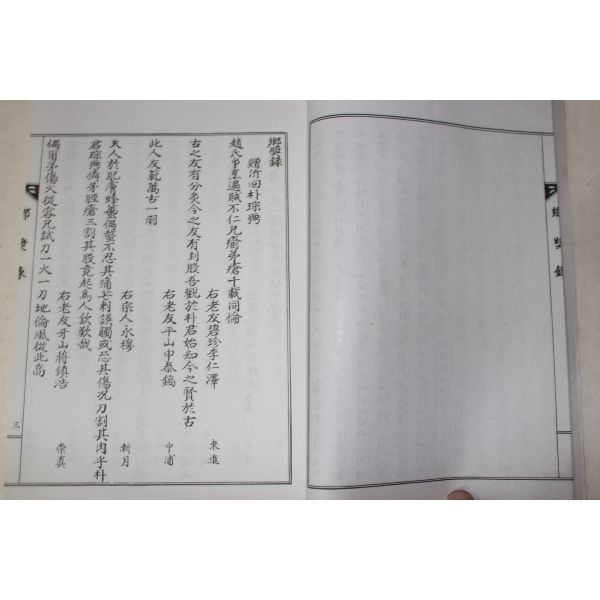 鄕奬錄
贈沂回朴琮興
趙氏爭烹遇賊不仁兄瘡弟瘡千載同倫
右老友碧珍李仁澤 東進
古之友有分灸今之友有刲股吾觀於朴君始知今之賢於古
右老友平山申泰鎬 中浦
此人友範萬古一羽
右宗人永穆 新月
夫人於肥膚蜂蠆偶螫不忍其痛芒刺誤觸或恐其傷况刀割其肉乎朴
君琮興憐弟脛瘡三割其股竟起爲人欽歎哉
右老友牙山蔣鎭浩 崇眞
偶爾弟傷火從容兄試刀一火一刀地倫風從此高
三
鄕奬錄
鄕奬錄